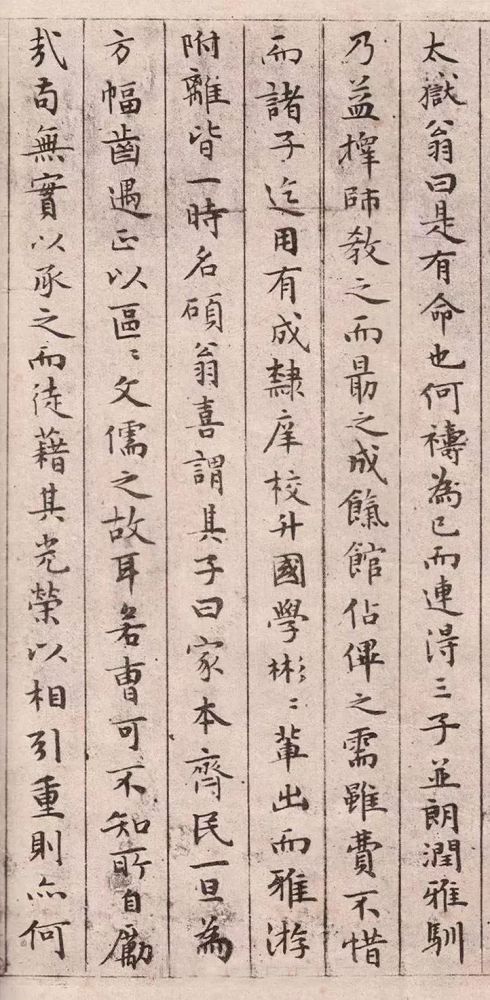 太嶽翁曰是有命也何禱為已而連淂三子並朗潤雅馴
乃益擇師教之而勗之成餼館佔俾之需雖費不惜
而諸子迄用有成隸庠校升國學彬〻輩出而雅游
附離皆一時名碩翁喜謂其子曰家本齊民一旦為
方幅齒遇正以區〻文儒之故耳若曹可不知所自勵
哉苟無實以承之而徒藉其光榮以相引重則亦何